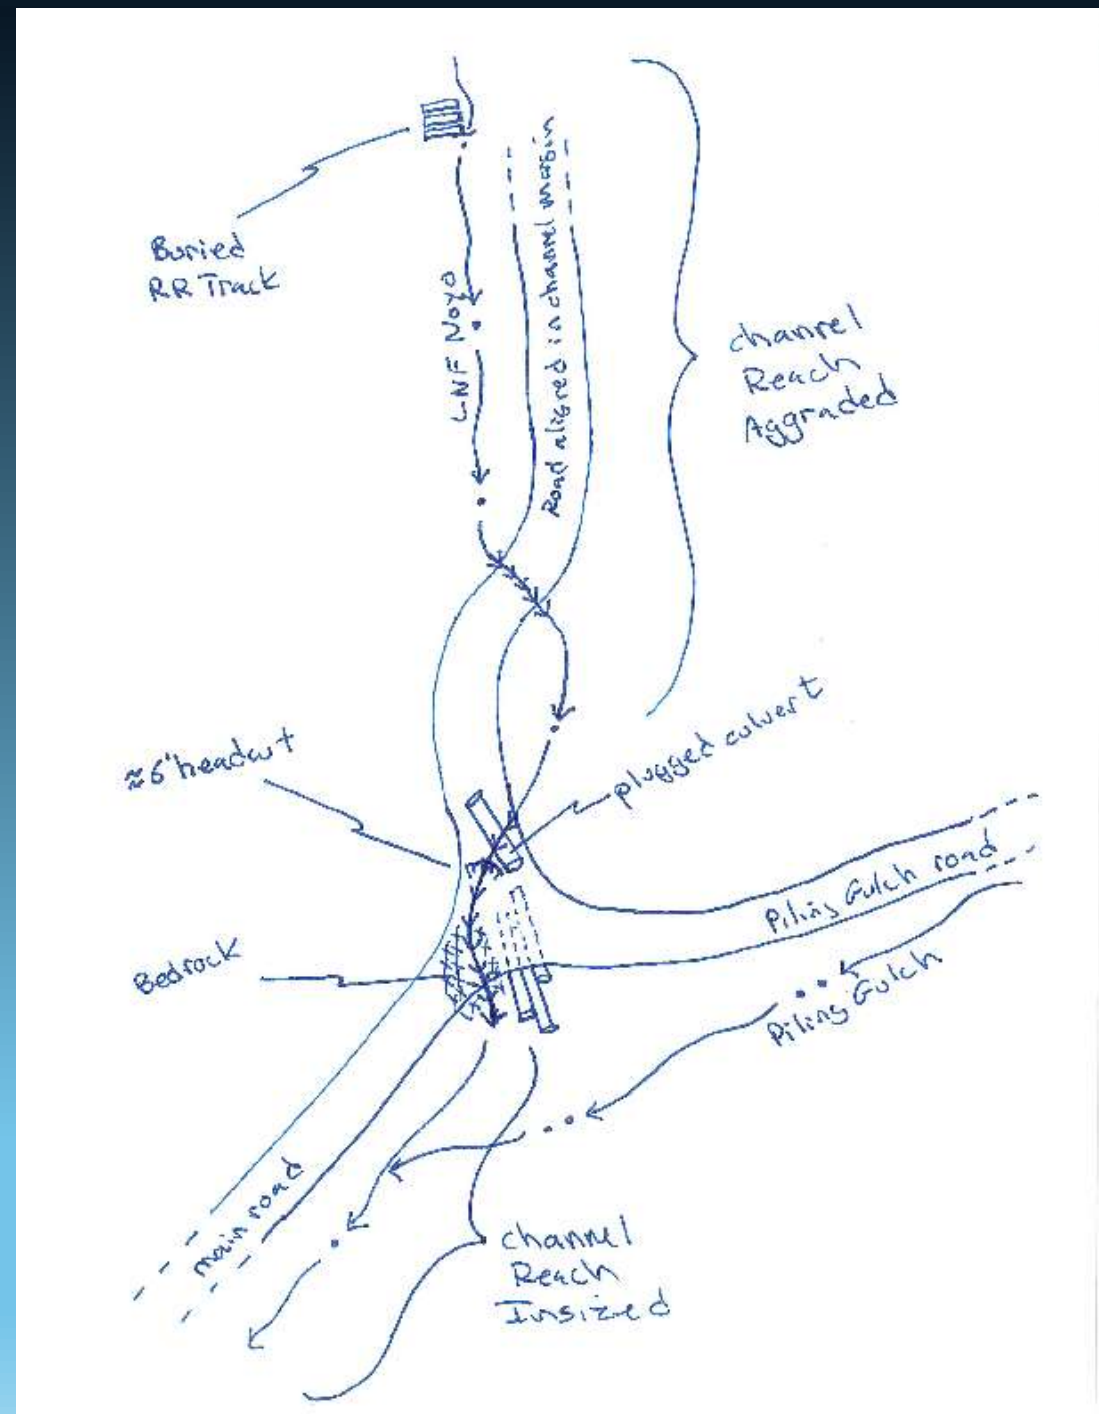 Buried
RR Track
LNF Noyo
Road aligned in channel margin
channel
Reach
Aggraded
≈6' headcut
plugged culvert
Piling Gulch road
Bedrock
Piling Gulch
main road
channel
Reach
Insized